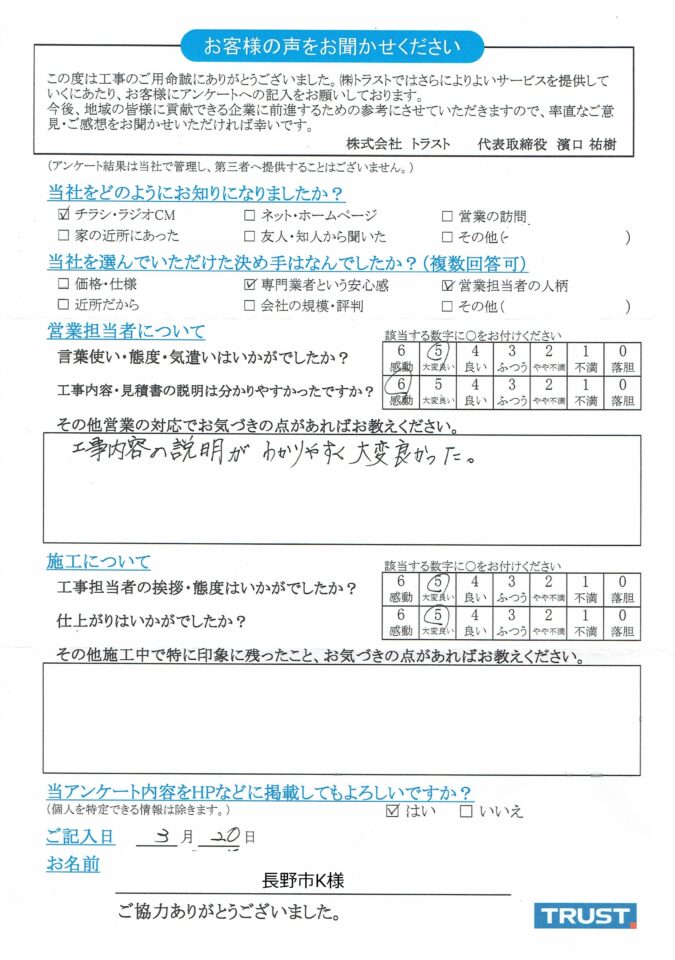 お客様の声をお聞かせください
この度は工事のご用命誠にありがとうございました。㈱トラストではさらによりよいサービスを提供して
いくにあたり、お客様にアンケートへの記入をお願いしております。
今後、地域の皆様に貢献できる企業に前進するための参考にさせていただきますので、率直なご意
見・ご感想をお聞かせいただければ幸いです。
株式会社 トラスト 代表取締役 濱口 祐樹
(アンケート結果は当社で管理し、第三者へ提供することはございません。)
当社をどのようにお知りになりましたか？
☑ チラシ・ラジオCM □ ネット・ホームページ □ 営業の訪問
□ 家の近所にあった □ 友人・知人から聞いた □ その他( )
当社を選んでいただけた決め手はなんでしたか？(複数回答可)
□ 価格・仕様 ☑ 専門業者という安心感 ☑ 営業担当者の人柄
□ 近所だから □ 会社の規模・評判 □ その他( )
営業担当者について 該当する数字に○をお付けください
言葉使い・態度・気遣いはいかがでしたか？ 6 5 4 3 2 1 0
感動 大変良い 良い ふつう やや不満 不満 落胆
工事内容・見積書の説明は分かりやすかったですか？ 6 5 4 3 2 1 0
感動 大変良い 良い ふつう やや不満 不満 落胆
その他営業の対応でお気づきの点があればお教えください。
工事内容の説明が わかりやすく 大変良かった。
施工について 該当する数字に○をお付けください
工事担当者の挨拶・態度はいかがでしたか？ 6 5 4 3 2 1 0
感動 大変良い 良い ふつう やや不満 不満 落胆
仕上がりはいかがでしたか？ 6 5 4 3 2 1 0
感動 大変良い 良い ふつう やや不満 不満 落胆
その他施工中で特に印象に残ったこと、お気づきの点があればお教えください。
当アンケート内容をHPなどに掲載してもよろしいですか？
(個人を特定できる情報は除きます。) ☑ はい □ いいえ
ご記入日 3 月 20 日
お名前
長野市K様
ご協力ありがとうございました。
TRUST.